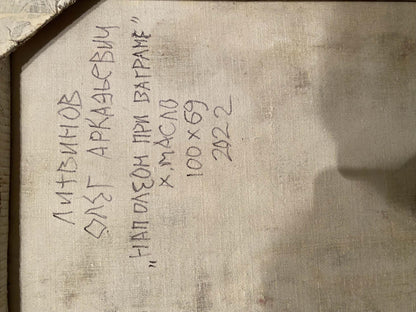 ЛИТВИНОВ
ОЛЕГ АРКАДЬЕВИЧ
„НАПОЛЕОН ПРИ ВАГРАМЕ”
Х.МАСЛО
100х69
2022